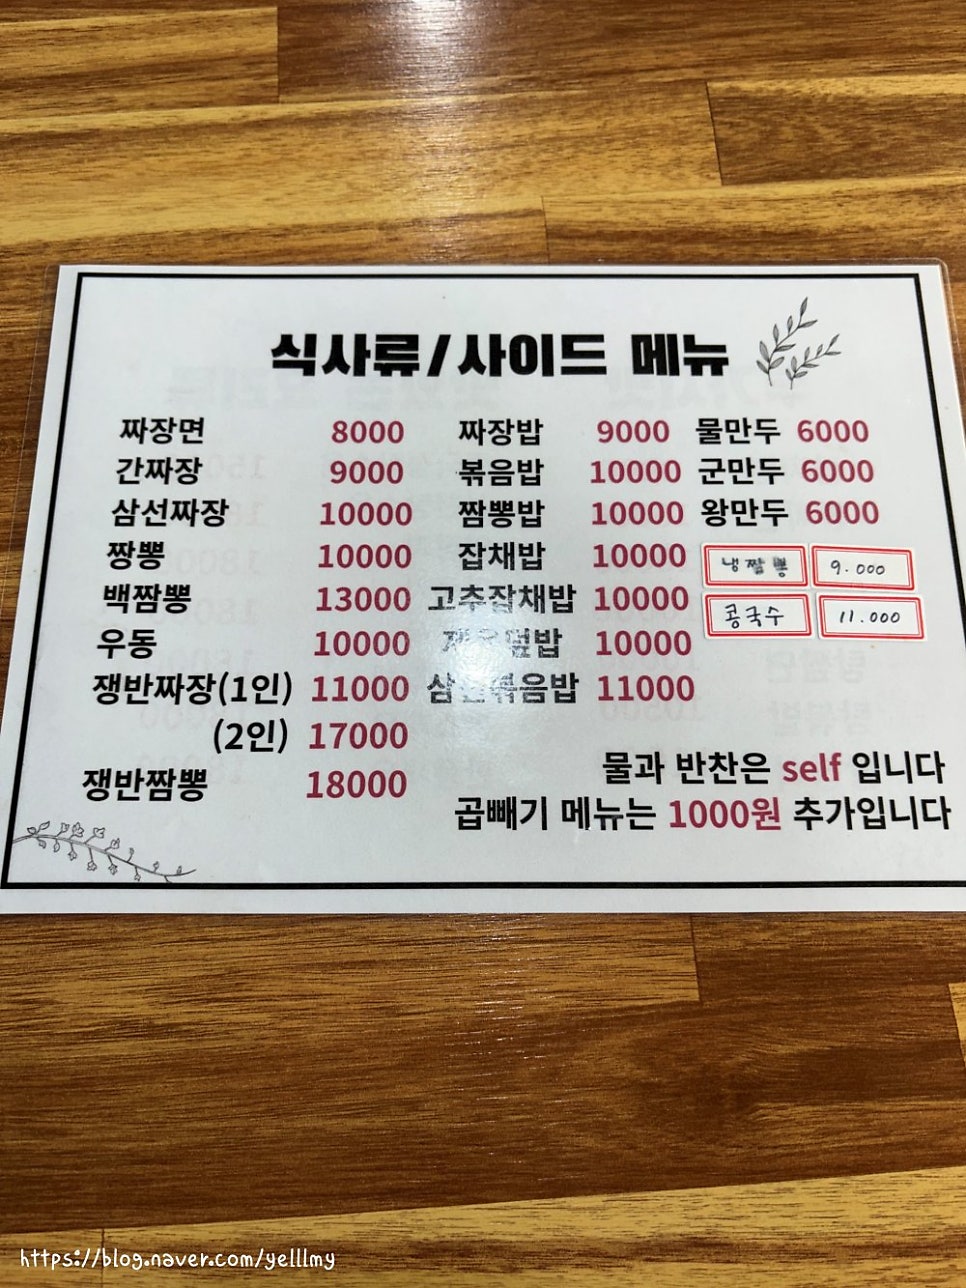 식사류/사이드 메뉴
짜장면 8000
간짜장 9000
삼선짜장 10000
짱뽕 10000
백짬뽕 13000
우동 10000
쟁반짜장(1인) 11000
(2인) 17000
쟁반짬뽕 18000
짜장밥 9000
볶음밥 10000
짬뽕밥 10000
잡채밥 10000
고추잡채밥 10000
제육덮밥 10000
삼선볶음밥 11000
물만두 6000
군만두 6000
왕만두 6000
냉짬뽕 9.000
콩국수 11.000
물과 반찬은 self 입니다
곱빼기 메뉴는 1000원 추가입니다
https://blog.naver.com/yelllmy